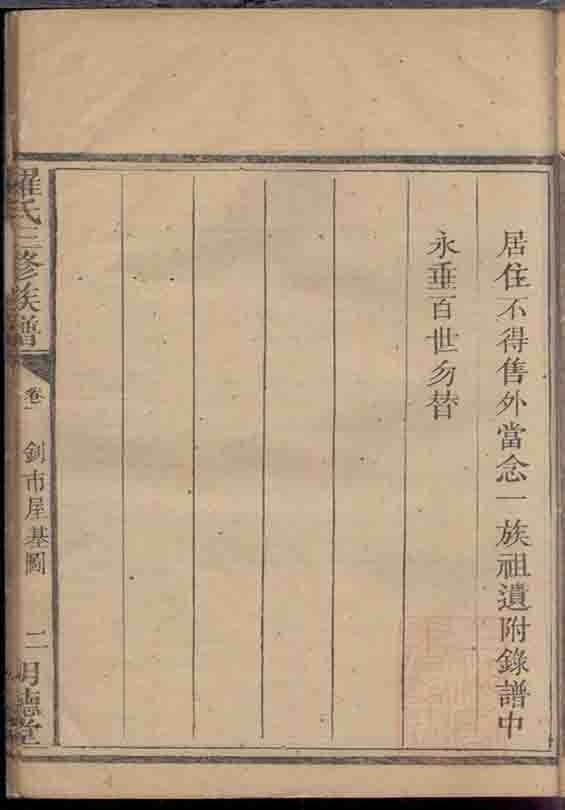 居住不得售外當念一族祖遺附錄譜中
永垂百世勿替
羅氏三修族譜
卷一
釗市屋基圖
二
明德堂